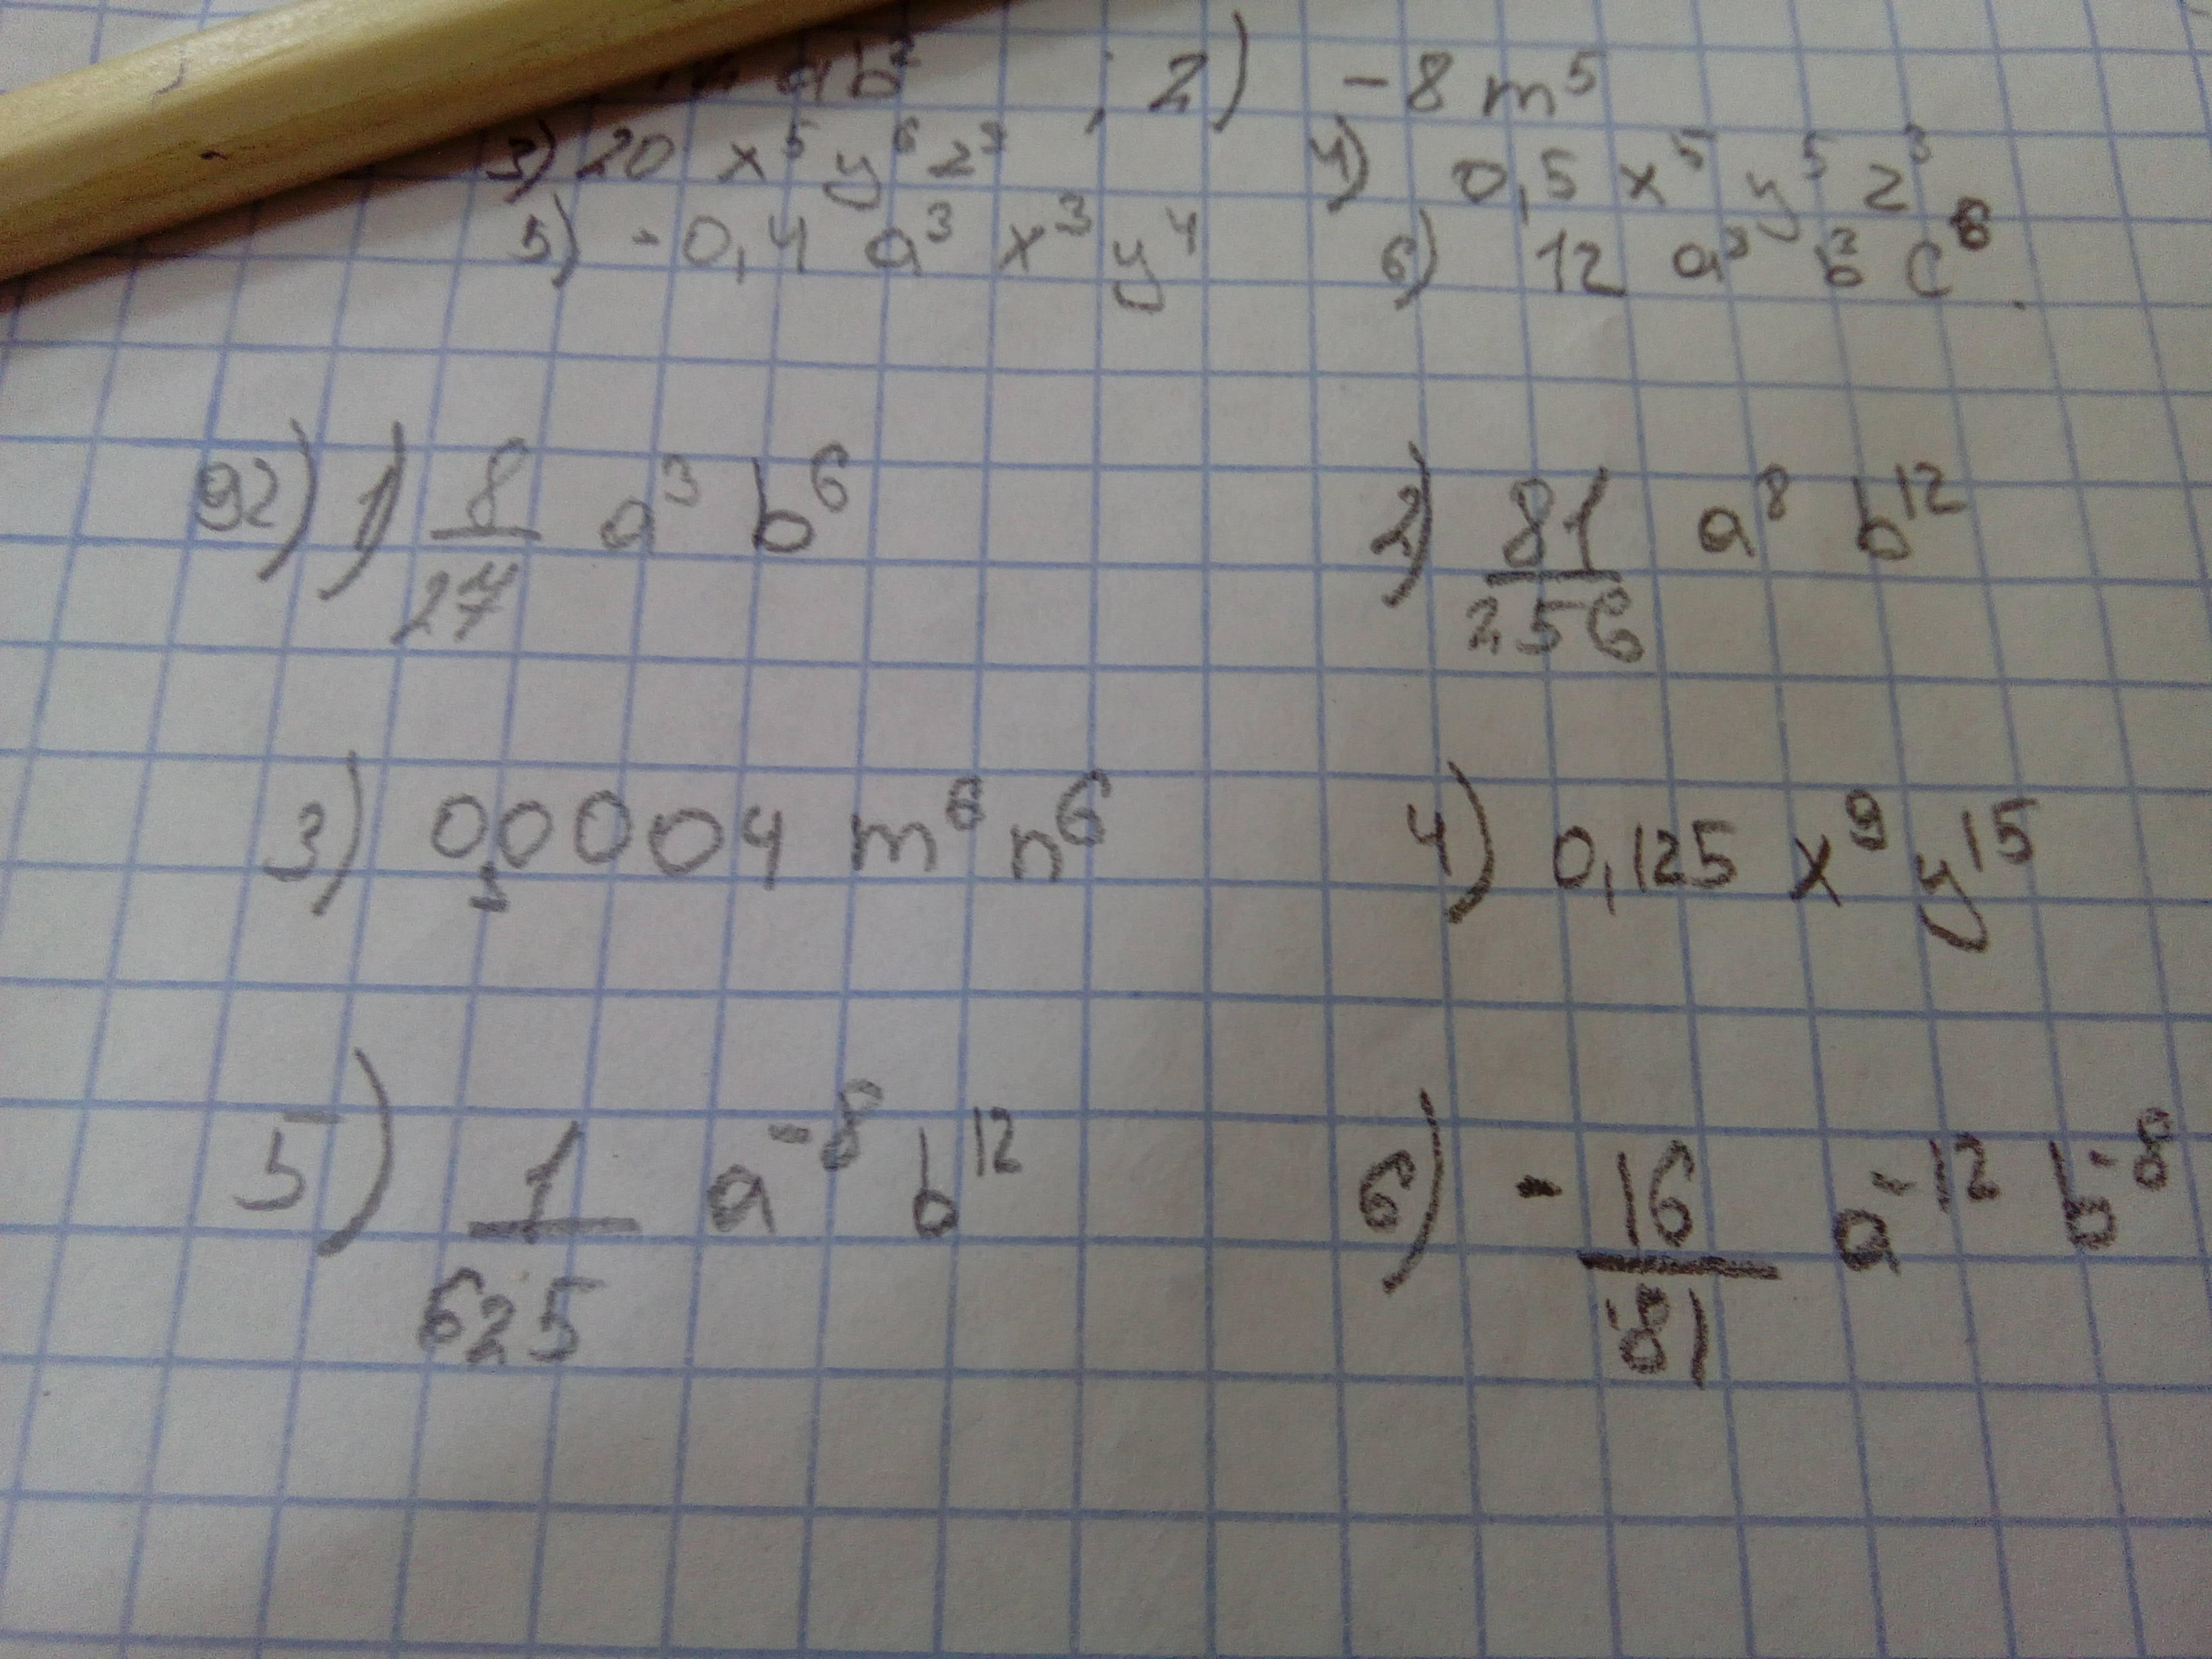 ab² ; 2) -8 m⁵
3) 20 x⁵ y⁶ z⁹ 4) 0,5 x⁵ y⁵ z³
5) -0,4 a³ x³ y⁴ 6) 12 a³ b³ c⁶.
92) 1) 8/27 a³ b⁶ 2) 81/256 a⁸ b¹²
3) 0,0004 m⁶ n⁶ 4) 0,125 x⁹ y¹⁵
5) 1/625 a⁻⁸ b¹² 6) -16/81 a⁻¹² b⁻⁸